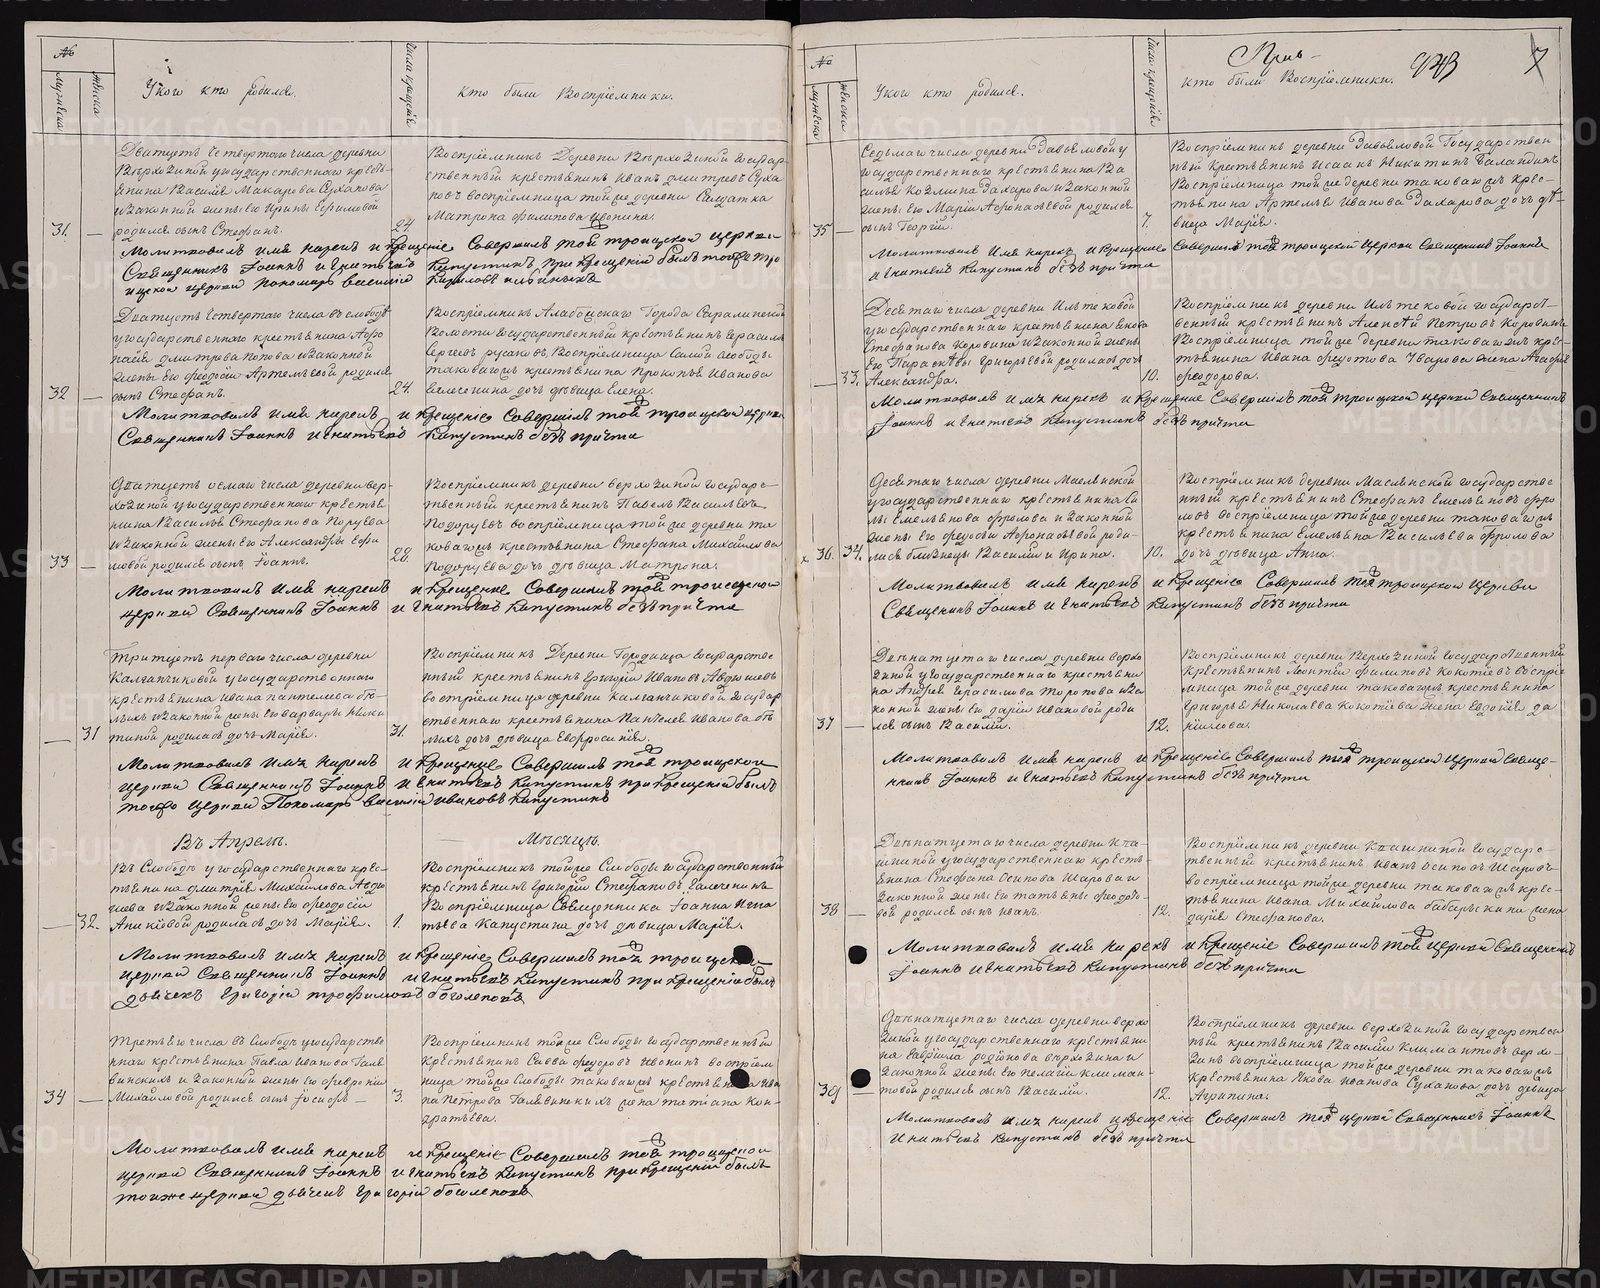 №
мужеска
женска
У кого кто родился.
Число крещенія
кто были Воспріемники.
Дватцеть четвертого числа деревни
Верхозиной у государственного кресть-
янина Василія Макарова Суханова
и законной жены его Ирины Ефимовой
родился сынъ Стефанъ.
31.
—
24.
Воспріемникъ Деревни Верхозиной Государ-
ственный крестьянинъ Иванъ Дмитревъ Суха
новъ воспріемница той же деревни Салдатка
Матрона Филипова Ивонина.
Молитвовалъ имя нарекъ и крещеніе Совершилъ той троицкой церкви
Священникъ Іоаннъ Игнатьевъ Капустинъ при крещеніи былъ тоя же тро
ицкой церкви Пономарь Василій
Дватцеть четвертаго числа въ слободѣ
у государственнаго крестьянина Афо
насія Дмитрева Попова и законной
жены его Феодосіи Артемьевой родился
сынъ Стефанъ.
32
—
24.
Воспріемникъ Алабошскаго Города Сарапинской
Волости Государственный крестьянинъ Герасимъ
Сергеевъ Русаковъ, Воспріемница Самой слободы
таковагожъ крестьянина Прокопья Иванова
дочь дѣвица Елена.
Молитвовалъ имя нарекъ и крещеніе Совершилъ той троицкой церкви
Священникъ Іоаннъ Игнатьевъ Капустинъ безъ причта
Дватцеть осмаго числа деревни вер-
хозиной у государственнаго крестья
нина Василья Стефанова Поруева
и законной жены его Александры Ефи
мовой родился сынъ Іоаннъ.
33
—
28.
Воспріемникъ деревни верхозиной государс-
твенный крестьянинъ Павелъ Васильевъ
Подоруевъ воспріемница той же деревни та
ковагожъ крестьянина Стефана Михайлова
Подоруева дочь дѣвица Матрона.
Молитвовалъ имя нарекъ и крещеніе Совершилъ той троицской
церкви Священникъ Іоаннъ Игнатьевъ Капустинъ безъ причта
Тритцеть перваго числа деревни
Калганчиковой у государственнаго
крестьянина Ивана Пантелеева Бѣ-
лыхъ и законной жены его Варвары Ники
тиной родилась дочь Марія.
—
31
31.
Воспріемникъ Деревни Городища Государстве
нный крестьянинъ Григорій Ивановъ Авдюшевъ
воспріемница деревни Калганчиковой Государ
ственнаго крестьянина Пантелея Иванова Бѣ
лыхъ дочь дѣвица Евфросинія.
Молитвовалъ имя нарекъ и крещеніе Совершилъ той троицкой
церкви Священникъ Іоаннъ Игнатьевъ Капустинъ при крещеніи былъ
тоя же церкви Пономарь Василій Ивановъ Капустинъ
Въ Апрелѣ. Мѣсяцѣ.
Въ Слободѣ у государственнаго крес-
тьянина Дмитрія Михайлова Авдю
шева и законной жены его Феодосіи
Аникіевой родилась дочь Марія.
—
32.
1.
Воспріемникъ той же Слободы государственный
крестьянинъ Григорій Стефановъ Галечинъ
Воспріемница Священника Іоанна Игна
тьева Капустина дочь дѣвица Марія.
Молитвовалъ имя нарекъ и крещеніе Совершилъ той троицской
церкви Священникъ Іоаннъ Игнатьевъ Капустинъ при крещеніи былъ
дьячекъ Григорій Трофимовъ Боголеповъ
Третьяго числа въ Слободѣ у государстве
ннаго крестьянина Павла Иванова Галя
винскихъ и законной жены его Февроніи
Михайловой родился сынъ Іосифъ —
34
—
3.
Воспріемникъ той же Слободы государственный
крестьянинъ Савва Федоровъ Ивонинъ воспріем
ница той же Слободы таковагожъ крестьянина Ива
на Петрова Галявинскихъ жена Татіана Кон-
дратьева.
Молитвовалъ имя нарекъ и крещеніе Совершилъ той троицской
церкви Священникъ Іоаннъ Игнатьевъ Капустинъ при крещеніи былъ
тоя же церкви дьячекъ Григорій Боголеповъ
№
мужеска
женска
У кого кто родился.
Число крещенія
кто были Воспріемники.
7
Седьмаго числа деревни Давыдовой у
государственнаго крестьянина Ва
силья Козмина Захарова и законной
жены его Маріи Афонасьевой родился
сынъ Георгій.
35
—
7.
Воспріемникъ деревни Давыдовой Государствен
ный Крестьянинъ Исаакъ Никитинъ Баландинъ
Воспріемница той же деревни таковагожъ Крес-
тьянина Артемья Иванова Захарова дочь дѣ-
вица Марія.
Молитвовалъ Имя нарекъ и Крещеніе Совершилъ той троицкой Церкви Священникъ Іоаннъ
Игнатьевъ Капустинъ безъ причта
Десятаго числа деревни Ильтековой
у государственнаго крестьянина Якова
Стефанова Коровина и законной жены
его Параскевы Григорьевой родилась дочь
Александра.
—
33.
10.
Воспріемникъ деревни Ильтековой государст-
венный крестьянинъ Алексѣй Петровъ Коровинъ
Воспріемница той же деревни таковагожъ крес-
тьянина Ивана Федотова Уварова жена Агафія
Феодорова.
Молитвовалъ Имя нарекъ и Крещеніе Совершилъ той троицкой церкви Священникъ
Іоаннъ Игнатьевъ Капустинъ безъ причта
Десятаго числа деревни Маслянской
у государственнаго крестьянина Си
лы Емельянова Фролова и законной
жены его Федосьи Афонасьевой роди-
лись близнецы Василій и Ирина.
х 36.
34.
10.
Воспріемникъ деревни Маслянской государстве
нный крестьянинъ Стефанъ Емельяновъ Фро
ловъ воспріемница той же деревни таковагожъ
крестьянина Емельяна Васильева Фролова
дочь дѣвица Анна.
Молитвовалъ Имя нарекъ и Крещеніе Совершилъ той троицкой Церкви
Священникъ Іоаннъ Игнатьевъ Капустинъ безъ причта
Двѣнатцетаго числа деревни верхо
зиной у государственнаго крестьяни
на Андрея Герасимова Торопова и за
конной жены его Даріи Ивановой роди
лся сынъ Василій.
37
—
12.
Воспріемникъ деревни Верхозиной государственный
Крестьянинъ Леонтій Филиповъ Кокотѣевъ воспріе
мница той же деревни таковагожъ крестьянина
Григорья Николаева Кокотѣева жена Евдокія Да
нилова.
Молитвовалъ Имя нарекъ и Крещеніе Совершилъ той троицкой Церкви Священ-
никъ Іоаннъ Игнатьевъ Капустинъ безъ причта
Двѣнатцетаго числа деревни Ква-
шниной у государственнаго кресть-
янина Стефана Осипова Шарова и
законной жены его Татьяны Федото-
вой родился сынъ Иванъ.
38
—
12.
Воспріемникъ деревни Квашниной государс-
твенный крестьянинъ Иванъ Осиповъ Шаровъ
воспріемница той же деревни таковагожъ крес-
тьянина Ивана Михайлова Бабарыкина жена
Дарія Стефанова.
Молитвовалъ Имя нарекъ и Крещеніе Совершилъ той церкви Священникъ
Іоаннъ Игнатьевъ Капустинъ безъ причта
Двѣнатцетаго числа деревни верхо
зиной у государственнаго крестьяни
на Гаврила Родіонова Верхозина и
законной жены его Пелагіи Климан-
товой родился сынъ Василій.
39
—
12.
Воспріемникъ деревни верхозиной государствен
ный крестьянинъ Василій Климантовъ Верхо-
зинъ воспріемница той же деревни таковагожъ
Крестьянина Якова Иванова Суханова дочь дѣвица
Агрипина.
Молитвовалъ имя нарекъ и крещеніе Совершилъ той церкви Священникъ Іоаннъ
Игнатьевъ Капустинъ безъ причта
METRIKI.GASO-URAL.RU